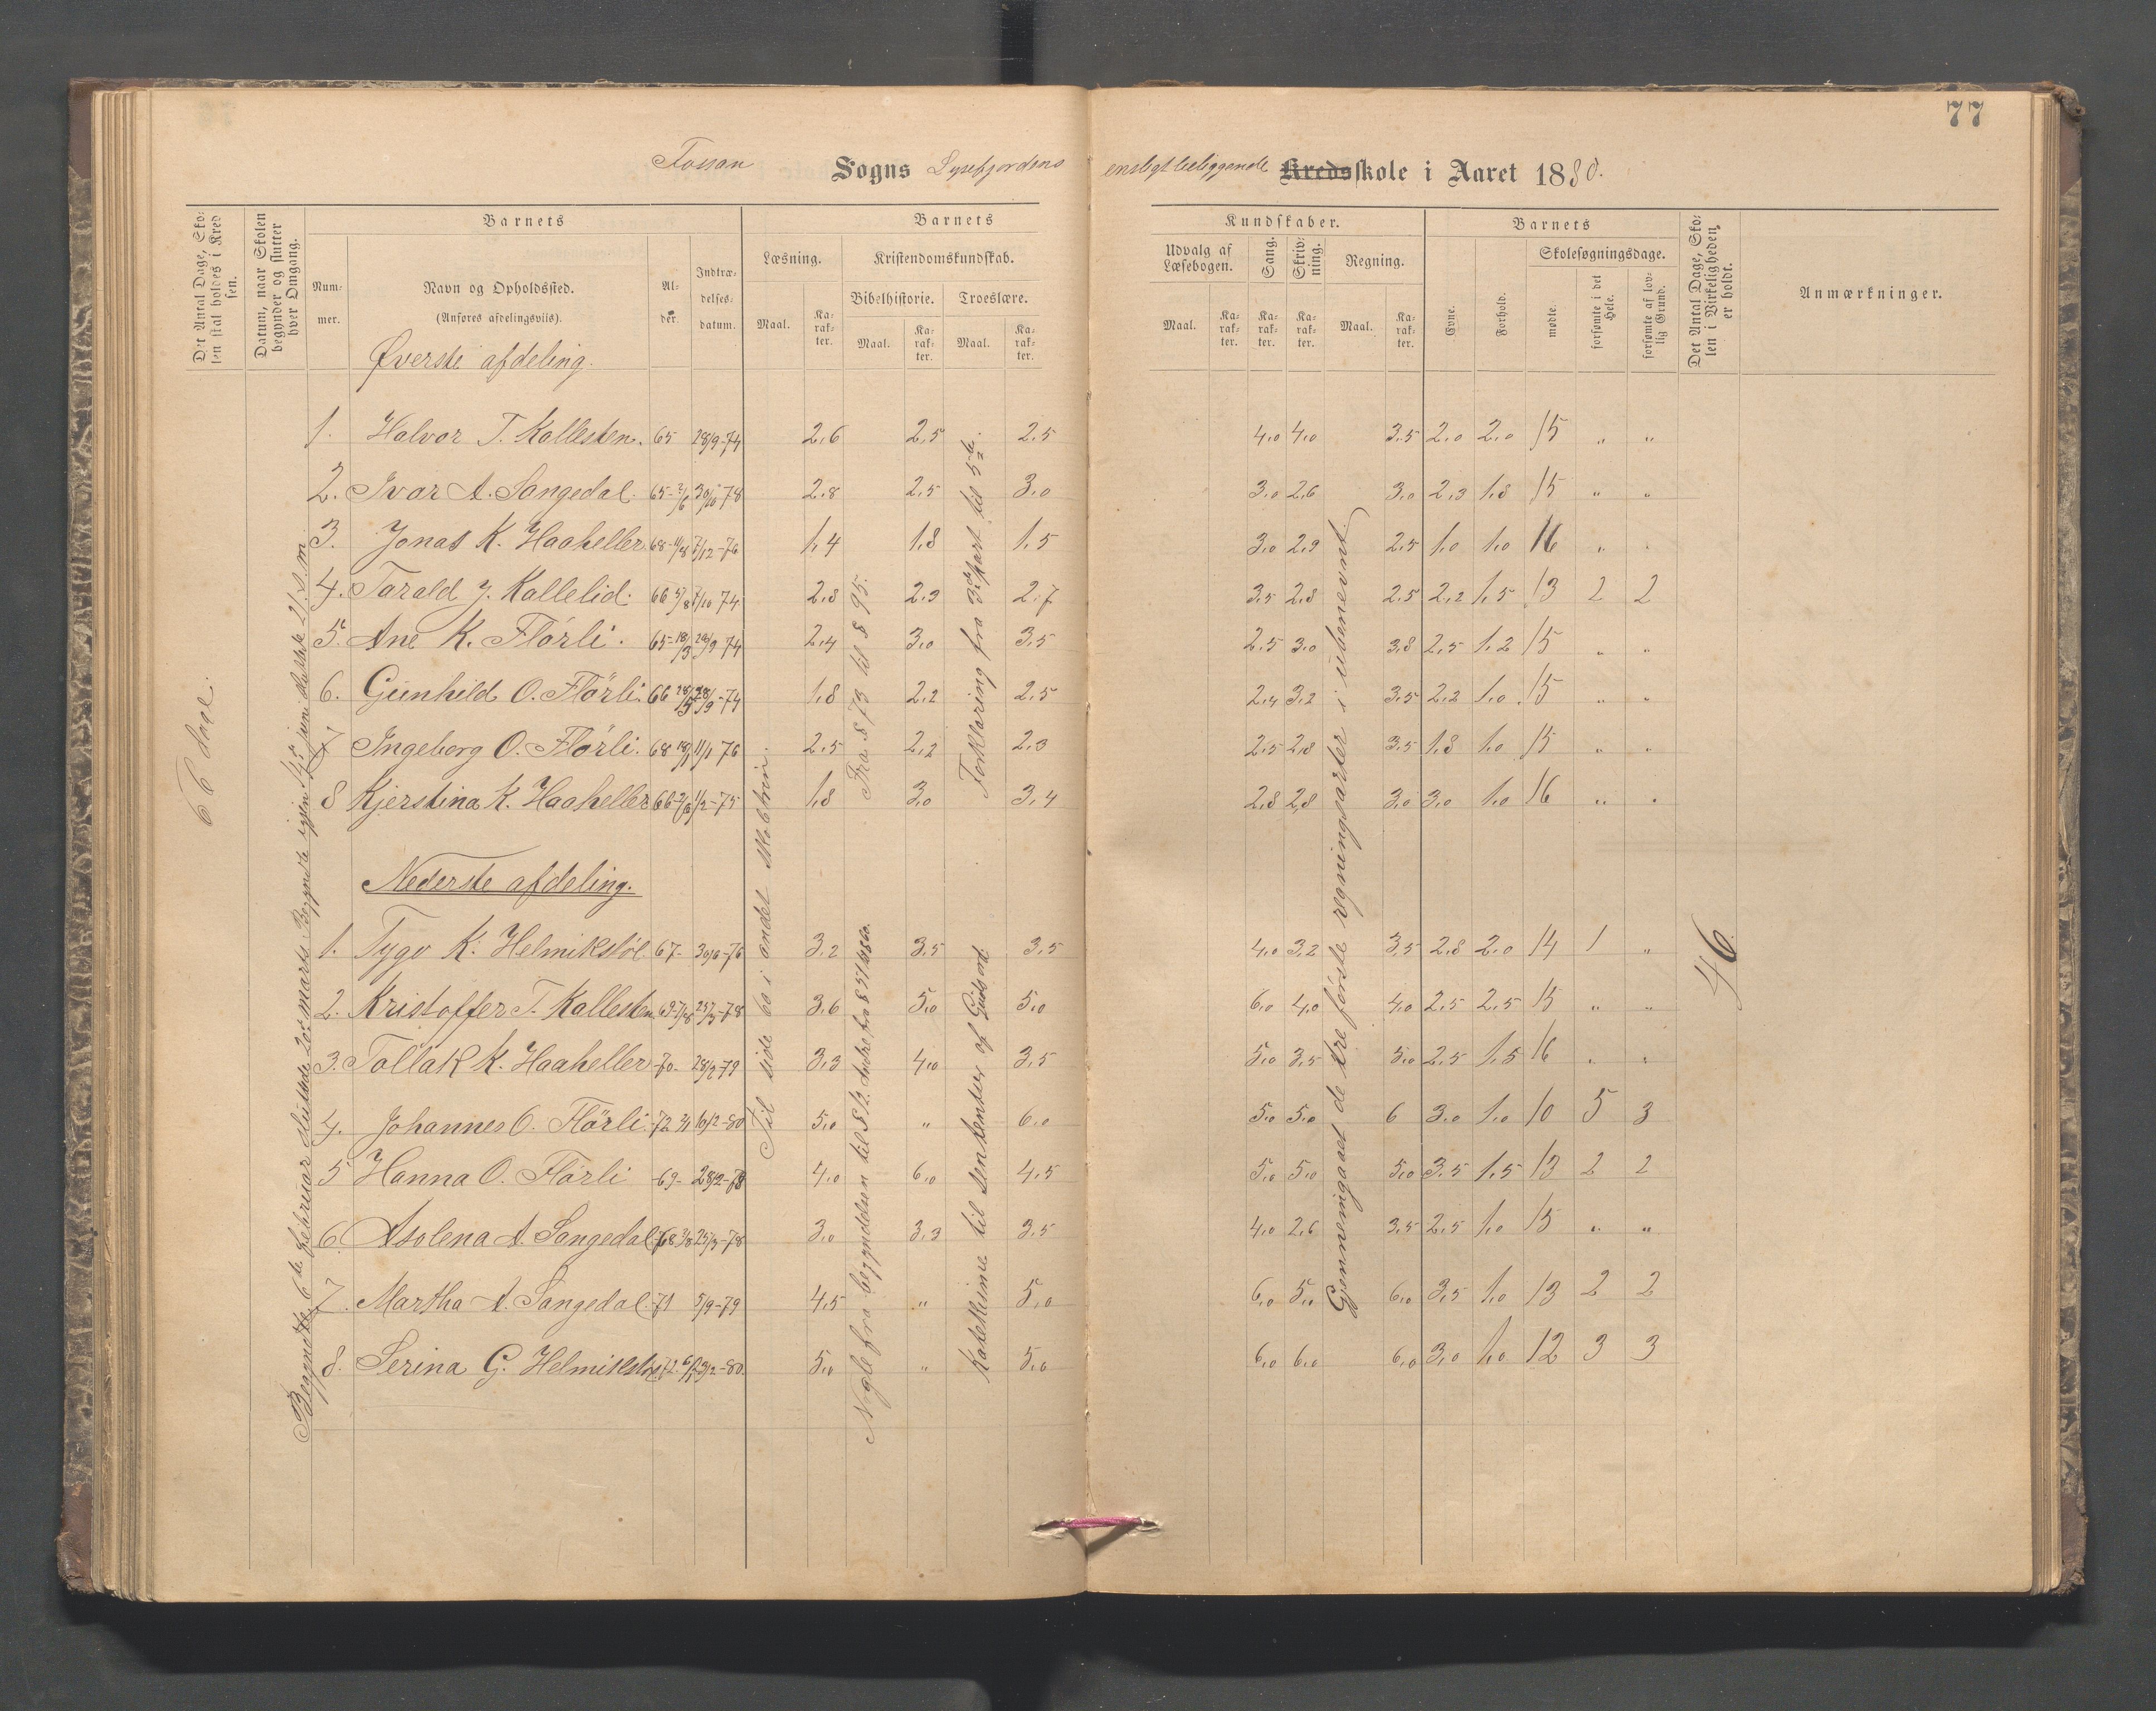 77
Fossan Sogns Lysefjordens ensligt beliggende Kredsskole i Aaret 1880.
Det Antal Dage, Skolen skal holdes i Kredsen.
Datum, naar Skolen begynder og slutter hver Omgang.
Barnets
Nummer.
Navn og Opholdssted.
(Anføres afdelingsviis).
Alder.
Indtrædelsesdatum.
Barnets
Læsning.
Maal.
Karakter.
Kristendomskundskab.
Bibelhistorie.
Maal.
Karakter.
Troeslære.
Maal.
Karakter.
Kundskaber.
Udvalg af Læsebogen.
Maal.
Karakter.
Sang.
Karakter.
Skrivning.
Karakter.
Regning.
Maal.
Karakter.
Barnets
Evne.
Forhold.
Skolesøgningsdage.
mødte.
forsømte i det Hele.
forsømte af lovlig Grund.
Det Antal Dage, Skolen i Virkeligheden er holdt.
Anmærkninger.
Øverste afdeling.
1. Halvor T. Kallesten. 65 28/9-74 2,6 2,5 2,5 4,0 4,0 3,5 2,0 2,0 15 " "
2. Ivar A. Sangedal. 65- 30/10-78 2,8 2,5 3,0 3,0 2,6 3,0 2,3 1,8 15 " "
3. Jonas K. Haaheller 68-11/8 7/12-76 1,4 1,8 1,5 3,0 2,9 2,5 1,0 1,0 16 " "
4. Tarald J. Kallelid. 66 7/10 74 2,8 2,9 2,7 3,5 2,8 2,5 2,2 1,5 13 2 2
5. Ane K. Flörli. 65-18/3 28/9 74 2,4 3,0 3,5 2,5 3,0 3,8 2,5 1,2 15 " "
6. Gunhild O. Flörli. 66 28/5 28/9-74 1,8 2,2 2,5 2,4 3,2 3,5 2,2 1,0 15 " "
7 Ingeborg O. Flörli. 68 11/1 76 2,5 2,2 2,3 2,5 2,8 3,5 1,8 1,0 15 " "
8 Kjerstina K. Haaheller 66 1/2-75 1,8 3,0 3,4 2,8 2,8 3,0 3,0 1,0 16 " "
Nederste afdeling.
1. Tygo K. Helmikstöl 67- 30/6-76 3,2 3,5 3,5 4,0 3,2 3,5 2,8 2,0 14 1 "
2. Kristoffer T. Kallesten 69-7/8 25/3-78 3,6 5,0 5,0 6,0 4,0 4,0 2,5 2,5 15 " "
3. Tollak K. Haaheller -70- 28/2-79 3,3 4,0 3,5 5,0 3,5 5,0 2,5 1,5 16 " "
4. Johannes O. Flörli. -72 10/2-80 5,0 " 6,0 5,0 5,0 6 3,0 1,0 10 5 3
5 Hanna O. Flörli -69- 28/2-78 4,0 6,0 4,5 5,0 5,0 5,0 3,5 1,5 13 2 2
6. Asolena A. Sangedal. 68 3/8 25/3-78 3,0 3,3 3,5 4,0 2,6 3,5 2,5 1,0 15 " "
7. Martha A. Sangedal. -71 5/9-79 4,5 " 5,0 6,0 5,0 6,0 3,5 1,0 13 2 2
8. Serina G. Helmikstöl 72. 23/2-80. 5,0 " 5,0 6,0 6,0 6,0 3,0 1,0 12 3 3
66 dage.
Begyndte 6te februar sluttede 20de marts. Begyndte igjen 14de juni sluttede 21. s.m.
Til side 60 i andet skoletrin.
Fra § 73 til § 95.
Nogle fra begyndelsen til § 12. Andre fra § 51 til § 60.
Forklaring fra 3die part til 5te.
Katekisme til sententser af Guds ord.
Gjennemgaaet de tre første regningsarter i ubenevnt.
46